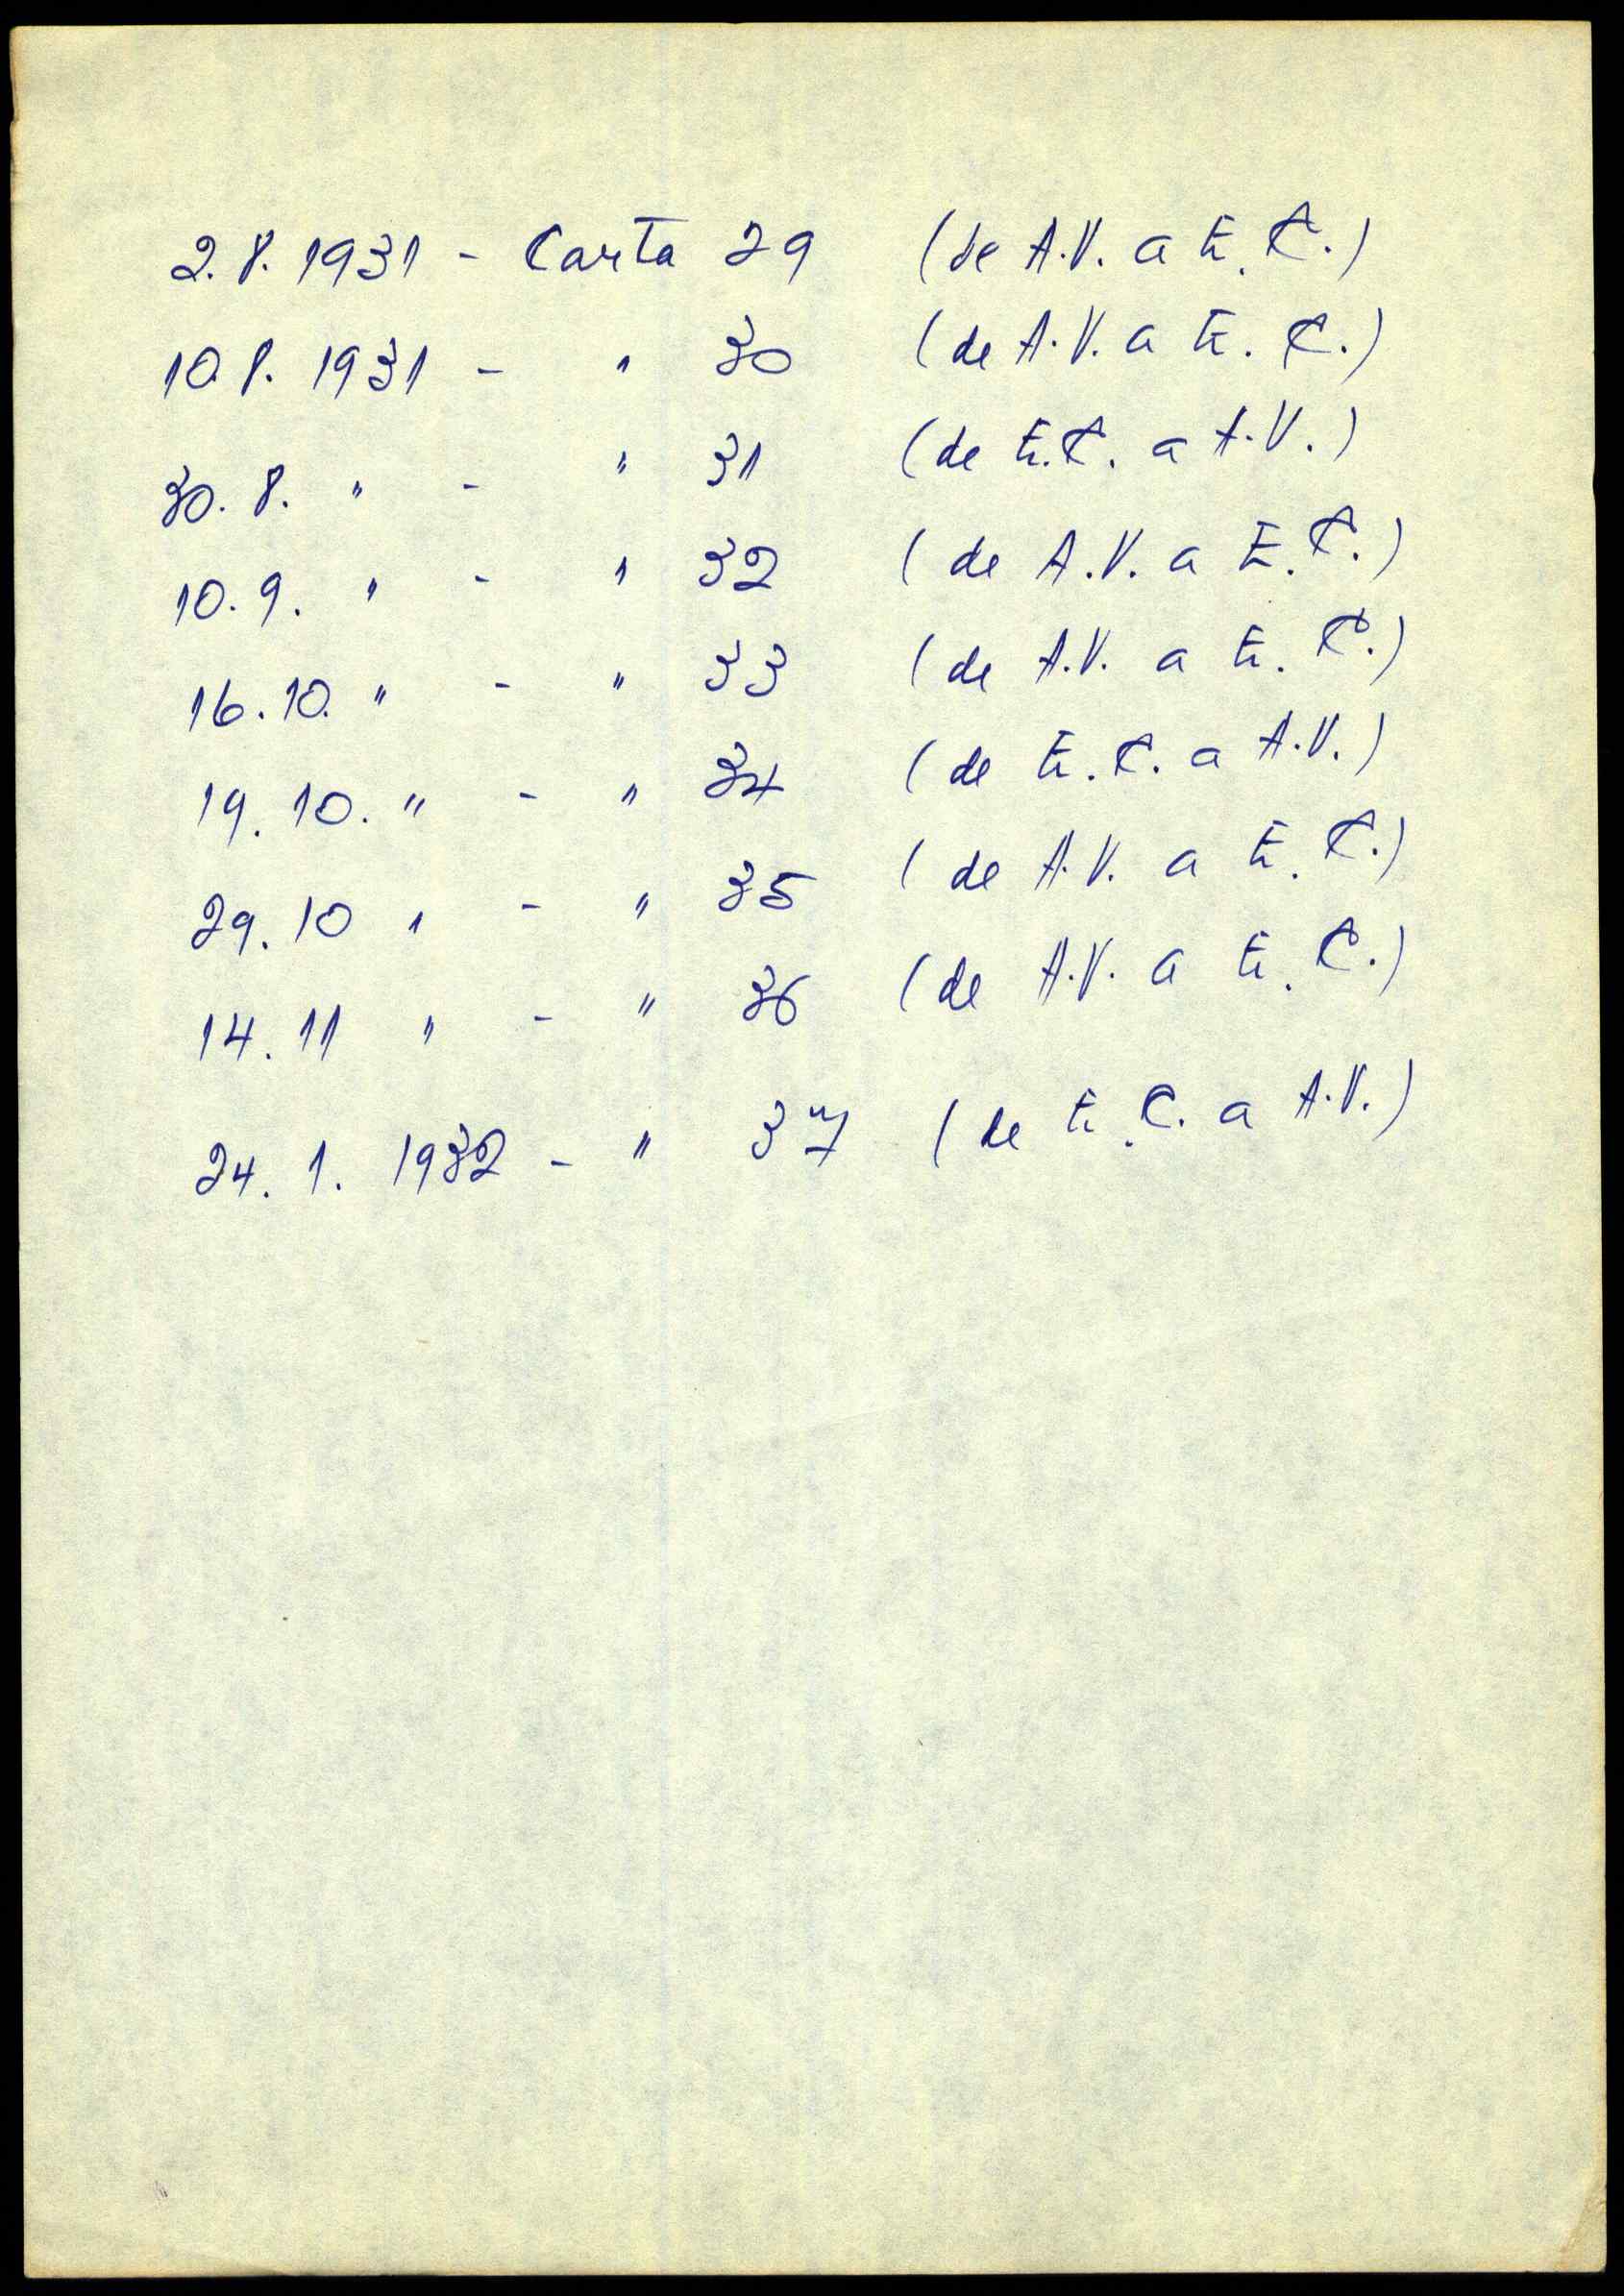 2.8.1931 - Carta 29 (de A.V. a E.C.)
10.8.1931 - " 30 (de A.V. a E.C.)
30.8. " - " 31 (de E.C. a A.V.)
10.9. " - " 32 (de A.V. a E.C.)
16.10. " - " 33 (de A.V. a E.C.)
19.10. " - " 34 (de E.C. a A.V.)
29.10 " - " 35 (de A.V. a E.C.)
14.11 " - " 36 (de A.V. a E.C.)
24.1.1932 - " 37 (de E.C. a A.V.)